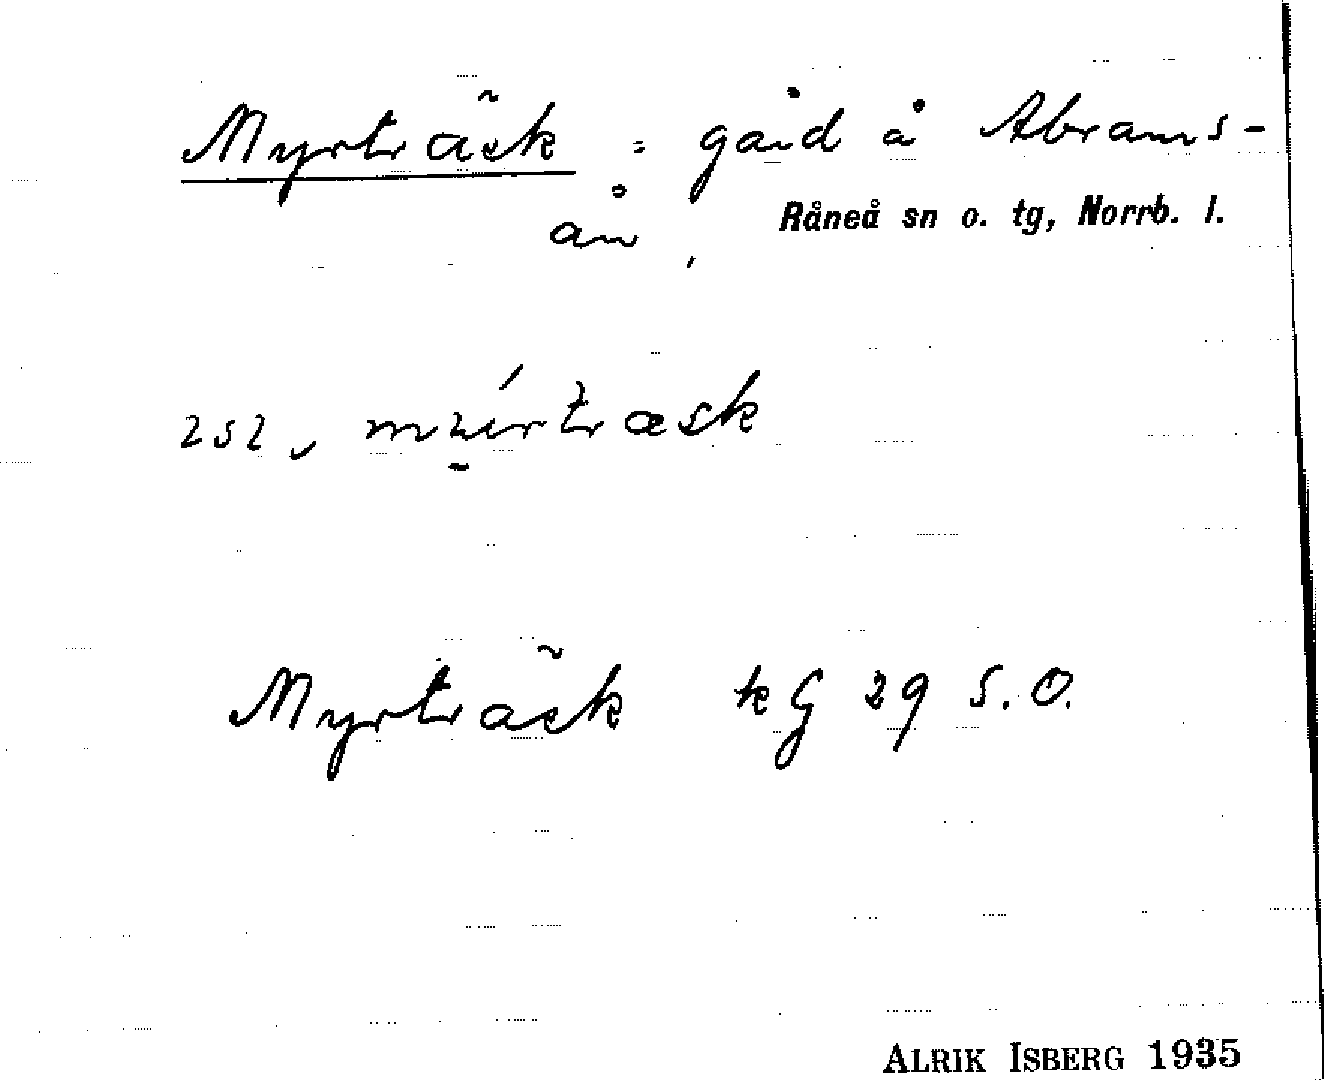 Myrträsk : gård å Abrams-
ån,
Råneå sn o. tg, Norrb. l.
Myrträsk kG 29 S.O.
ALRIK ISBERG 1935